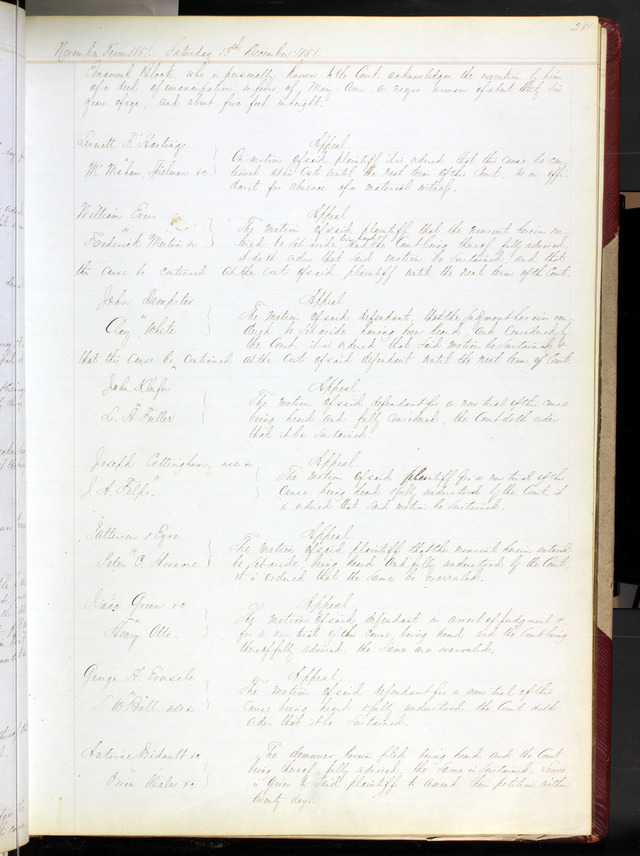 281
November Term 1851. Saturday 13th December 1851.
Emanuel Block, who is personally known to the Court acknowledges the execution by him
of a deed of emancipation in favor of Mary Ann a negro woman about thirty six
years of age, and about five feet in height.
Appeal
Hastings
On motion of said plaintiff it is ordered that this cause be con
tinued at his cost until the next term of this Court on affi
davit for absence of a material witness.
William
Appeal
The motion of said plaintiff that the nonsuit herein en
Frederick
tered be set aside the Court being thereof fully advised,
it doth order that said motion be sustained, and that
the cause be continued at the costs of said plaintiff until the next term of this Court.
John Dempster
Appeal
The motion of said defendant, that the judgment herein ren
Clay White
dered be set aside having been heard and considered by
the Court it is ordered that said motion be sustained &
that the cause be continued at the costs of said defendant until the next term of Court.
John
Appeal
The motion of said defendant for a new trial of this cause
L. A. Fuller
being heard and fully considered, the Court doth order
that it be sustained.
Joseph Cottingham, use &c
Appeal
The motion of said plaintiff for a new trial of this
J. A. Felps
cause being heard & fully understood by the Court, it
is ordered that said motion be sustained.
Patterson & Eyre
Appeal
The motion of said plaintiff that the nonsuit herein entered
Peter C.
be set aside, being heard and fully understood by the Court,
it is ordered that the same be overruled.
Isaac Green &c
Appeal
The motions of said defendant in arrest of judgment &
Henry Otto
for a new trial of this cause, being heard and the Court being
thereof fully advised the same are overruled.
George A.
Appeal
The motion of said defendant for a new trial of this
Hall, admr
cause being heard & fully understood, the Court doth
order that it be sustained.
Antoine Bidault &c
The demurrer herein filed being heard and the Court
being thereof fully advised, the same is sustained. Leave
&c
is given to said plaintiffs to amend their petition within
twenty days.